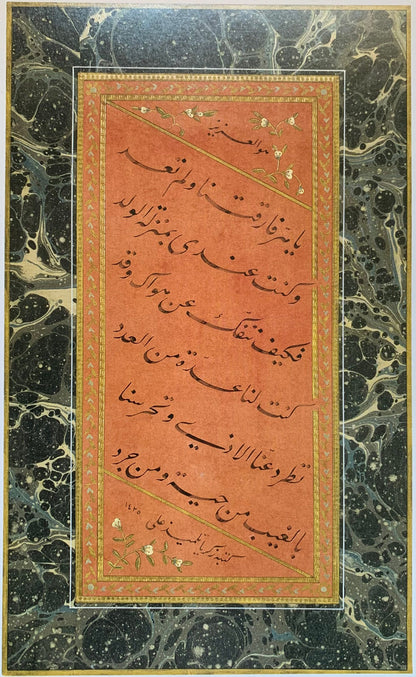 هو العزيز
يا هر فارقتنا ولم تعد
وكنت عندي بمنزلة الولد
فكيف ننفك عن هواك وقد
كنت لنا عدة من العدد
تطرد عنا الاذى وتحرسنا
بالغيب من حية ومن جرد
كتبه تلميذ علي